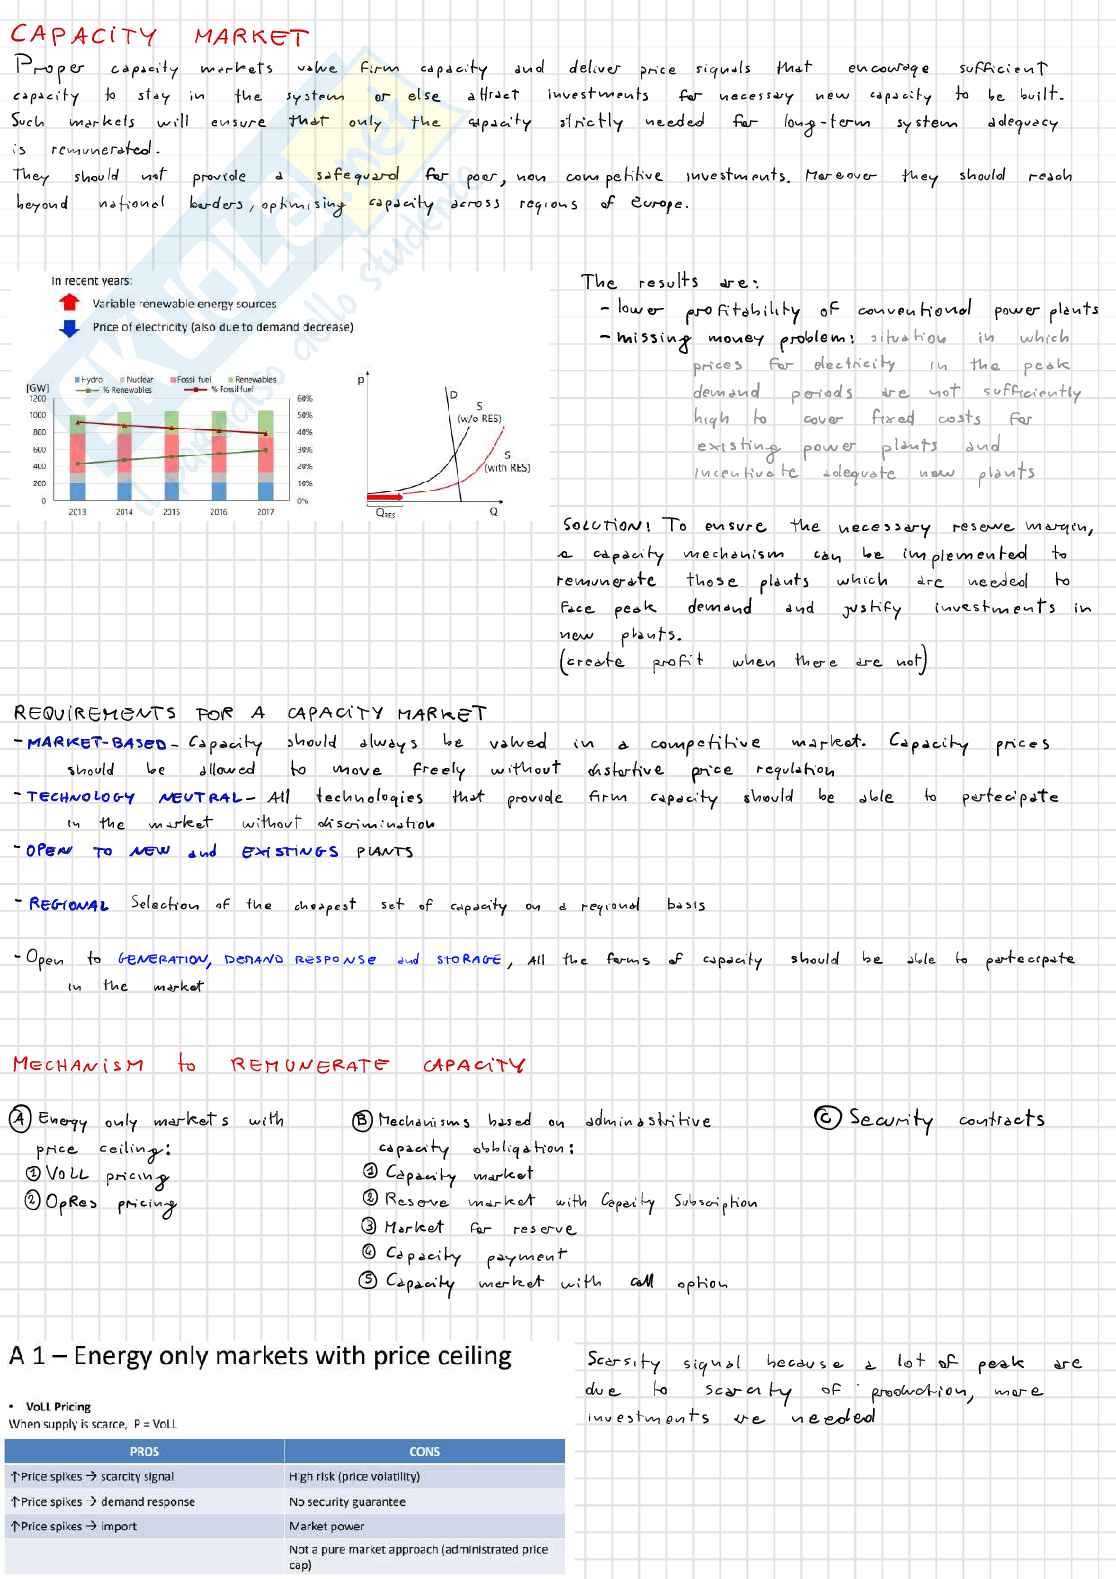 CAPACITY MARKET
Proper capacity markets value firm capacity and deliver price signals that encourage sufficient
capacity to stay in the system or else attract investments for necessary new capacity to be built.
Such markets will ensure that only the capacity strictly needed for long-term system adequacy
is remunerated.
They should not provide a safeguard for poor, non competitive investments. Moreover they should reach
beyond national borders, optimising capacity across regions of Europe.
In recent years:
Variable renewable energy sources
Price of electricity (also due to demand decrease)
Hydro Nuclear Fossil fuel Renewables
% Renewables % Fossil fuel
[GW]
1200
1000
800
600
400
200
0
60%
50%
40%
30%
20%
10%
0%
2013 2014 2015 2016 2017
p
D
S
(w/o RES)
S
(with RES)
QRES
Q
The results are:
- lower profitability of conventional power plants
- missing money problem: situation in which
prices for electricity in the peak
demand periods are not sufficiently
high to cover fixed costs for
existing power plants and
incentivate adequate new plants
SOLUTION! To ensure the necessary reserve margin,
a capacity mechanism can be implemented to
remunerate those plants which are needed to
face peak demand and justify investments in
new plants.
(create profit when there are not)
REQUIREMENTS FOR A CAPACITY MARKET
- MARKET-BASED - Capacity should always be valued in a competitive market. Capacity prices
should be allowed to move freely without distortive price regulation
- TECHNOLOGY NEUTRAL - All technologies that provide firm capacity should be able to partecipate
in the market without discrimination
- OPEN TO NEW and EXISTINGS PLANTS
- REGIONAL Selection of the cheapest set of capacity on a regional basis
- Open to GENERATION, DEMAND RESPONSE and STORAGE, All the forms of capacity should be able to partecipate
in the market
MECHANISM to REMUNERATE CAPACITY
A Energy only markets with
price ceiling:
1 VoLL pricing
2 OpRes pricing
B Mechanisms based on administritive
capacity obbligation:
1 Capacity market
2 Reserve market with Capacity Subscription
3 Market for reserve
4 Capacity payment
5 Capacity market with call option
C Security contracts
A 1 – Energy only markets with price ceiling
• VoLL Pricing
When supply is scarce, P = VoLL
PROS CONS
↑Price spikes → scarcity signal High risk (price volatility)
↑Price spikes → demand response No security guarantee
↑Price spikes → import Market power
Not a pure market approach (administrated price
cap)
Scarsity signal because a lot of peak are
due to scarcity of production, more
investments are needed
SKUOLA.net
il paradiso dello studente